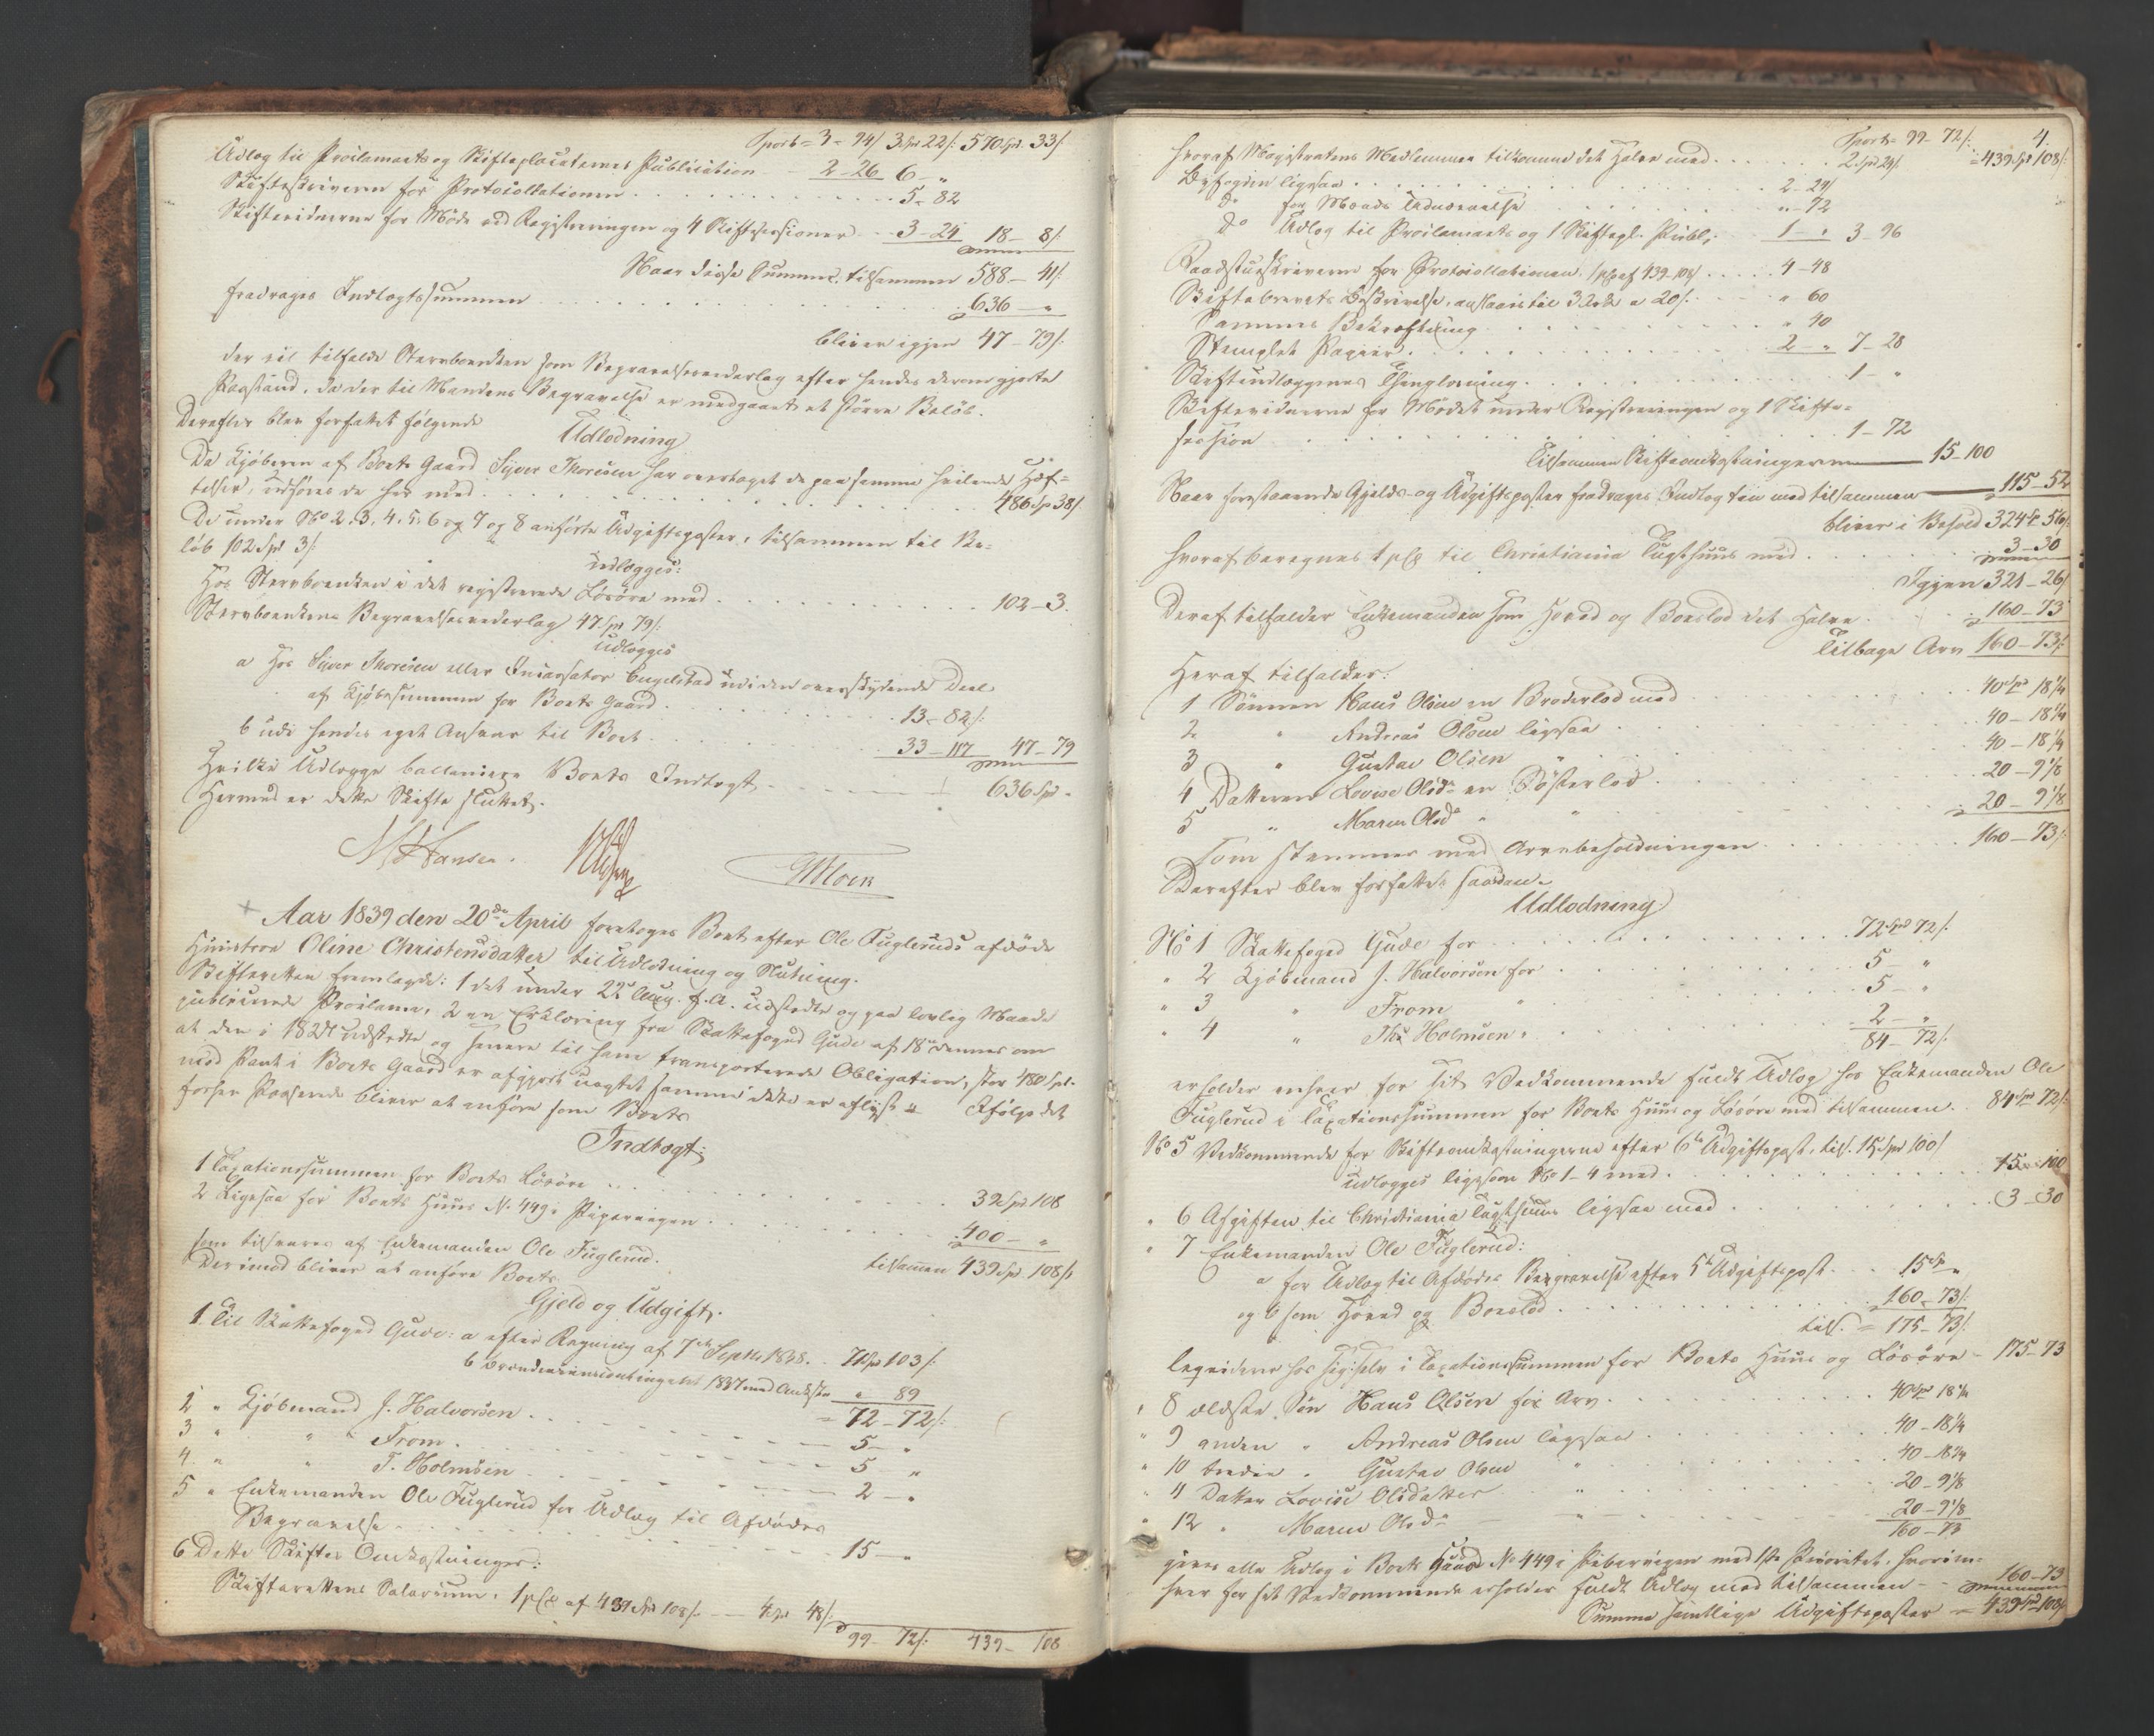 Tport = 3 - 94/ 3 Spd 22/: 570 Spd. 33/:
Udlæg til Proclamaets og Skifteplacaternes Publication 2-26 6 - "
Skifteskriveren for Protocollationen . . . 5 - 82
Skiftevidnerne for Møde ved Registreringen og 4 Skiftesessioner 3-24 18 - 8/:
Naar disse Summer, tilsammen 588 - 41/:
fradrages Indtægtssummen . . . 636 - "
bliver igjen 47 - 79/:
der vil tilfalde Stervboenken som Begravelsesvederlag efter hendes derom gjorte
Paastand, da der til Mandens Begravelse er medgaaet et større Beløb.
Derefter blev forfattet følgende
Udlodning
Da Kjøberen af Boets Gaard Syver Thoresen har overtaget de paa samme heftende Hæf=
telser, udføres de her med . . . 486 Spd 38/:
De under No 2, 3, 4, 5, 6 og 7 og 8 anførte Udgiftsposter, tilsammen til Be=
løb 102 Spd 3/:
udlægges:
Hos Stervboenken i det registrerede Løsøre med . . . 102 - 3.
Stervboenkens Begravelsesvederlag 47 Spd 79/:
udlægges
a Hos Syver Thoresen eller Incassator Engelstad udi den overskydende Deel
af Kjøbesummen for Boets Gaard . . . 13 - 82/:
b udi hendes eget Ansvar til Boet . . . 33 - 117 47 - 79
Hvilke Udlægge ballancere Boets Indtægt . . . 636 Spd -
Hermed er dette Skifte sluttet.
MHansen.
GMoen
Aar 1839 den 20de April foretoges Boet efter Ole Fugleruds afdøde
Huustroe Oline Christensdatter til Udlodning og Slutning.
Skifteretten fremlagde: 1 det under 22de Aug. f. A. udstedte og paa lovlig Maade
publicerede Proclama, 2 en Erklæring fra Skattefoged Gude af 18de dennes om
at den i 1824 udstedte og senere til ham transporterede Obligation, stor 480 Spd.
mod Pant i Boets Gaard er afgjort uagtet samme ikke er aflyst. Ifølge det
forhen Passerede bliver at anføre som Boets
Indtægt:
1 Taxationssummen for Boets Løsøre . . . 39 Spd 108
2 Ligesaa for Boets Huus N. 449 i Pipervigen . . . 400 - "
som tilsvares af Enkemanden Ole Fuglerud. tilsammen 439 Spd 108/:
Derimod bliver at anføre Boets
Gjeld og Udgift.
1. Til Skattefoged Gude: a efter Regning af 7de Septbr 1838. - 71 Spd 103/:
b Brandcassecontingent 1837 med Omkostn " 89
= 72 - 72/:
2 " Kjøbmand J. Halvorsen . . . 5 - "
3 " " From . . . 5 "
4. " " T. Holmsen . . . 2 - "
5 " Enkemanden Ole Fuglerud for Udlæg til Afdødes
Begravelse . . . 15 - "
6 Dette Skiftes Omkostninger:
Skifterettens Salarium, 1 pCt af 439 Spd 108/: - 4 Spd 48/:
99 - 72/: 439 - 108
4.
Tport = 99 - 72/: = 439 Spd 108/:
hvoraf Magistratens Medlemmer tilkomme det Halve med . . . 2 Spd 24/:
Byfogden ligesaa . . . 2 - 24/
Do for Mænds Udnævnelse " - 72
Do Udlæg til Proclamaets og 1 Skiftepl. Publ: 1 - " 3 - 96
Raadstueskriveren for Protocollationen 1 pCt af 439-108/ . . . 4 - 48
Skiftebrevets Beskrivelse, anslaaes til 3 Ark a 20/: . . . " 60
Sammes Bekræftning . . . " 40
Stemplet Papir . . . 2 - " 7 - 28
Skifteudlæggenes Thinglæsning . . . 1 - "
Skiftevidnerne for Mødet under Registreringen og 1 Skifte=
session . . . 1 - 72
Tilsammen Skifteomkostningerne 15 - 100
Naar forestaaende Gjelds- og Udgiftsposter fradrages Indtægten med tilsammen 115 - 52
bliver i Behold 324 Sp. 56/:
hvoraf beregnes 1 pCt til Christiania Tugthuus med . . . 3 - 30
Igjen 321 - 26/
Deraf tilfalder Enkemanden som Hoved og Boeslod det Halve . . . 160 - 73
Tilbage Arv 160 - 73/:
Heraf tilfalder:
1 Sønnen Hans Olsen en Broderlod med . . . 40 Spd 18 1/4
2 " Andreas Olsen ligesaa . . . 40 - 18 1/4
3 " Gustav Olsen " . . . 40 - 18 1/4
4 Datteren Lovise Olsd. en Søsterlod . . . 20 - 9 1/8
5 " Maren Olsd " " . . . 20 - 9 1/8
Som stemmer med Arvebeholdningen . . . 160 - 73/:
Derefter blev forfattet saadan
Udlodning
No 1 Skattefoged Gude for . . . 72 Spd 72/:
" 2 Kjøbmand J. Halvorsen for . . . 5 - "
" 3 " From " . . . 5 - "
" 4 " Ths Holmsen " . . . 2 - "
84 - 72/:
erholder enhver for sit Vedkommende fuldt Udlæg hos Enkemanden Ole
Fuglerud i Taxationssummen for Boets Huus og Løsøre med tilsammen. 84 Spd 72/:
No 5 Vedkommende for Skifteomkostningerne efter 6te Udgiftspost, tils. 15 Spd 100/
udlægges ligesom No 1-4 med . . . 15 - 100
" 6 Afgiften til Christiania Tugthuus ligesaa med . . . 3 - 30
" 7 Enkemanden Ole Fuglerud:
a for Udlæg til Afdødes Begravelse efter 5te Udgiftspost . . . 15 Sp "
og b som Hoved og Boeslod . . . 160 - 73/:
tils. = 175 - 73/:
leqviderer hos sig selv i Taxationssummen for Boets Huus og Løsøre - 175 - 73
" 8 ældste Søn Hans Olsen for Arv . . . 40 Spd 18 1/4
" 9 anden " Andreas Olsen ligesaa . . . 40 - 18 1/4
" 10 tredie " Gustav Olsen " . . . 40 - 18 1/4
" 11 Datter Lovise Olsdatter " . . . 20 - 9 1/8
" 12 " Maren Olsd. " . . . 20 - 9 1/8
160 - 73
gives alle Udlæg i Boets Gaard No 449 i Pibervigen med 1ste Prioritet, hvorom=
hver for sit Vedkommende erholder fuldt Udlæg med tilsammen - - 160 - 73
Summa samtlige Udgiftsposter = 439 Spd 108/